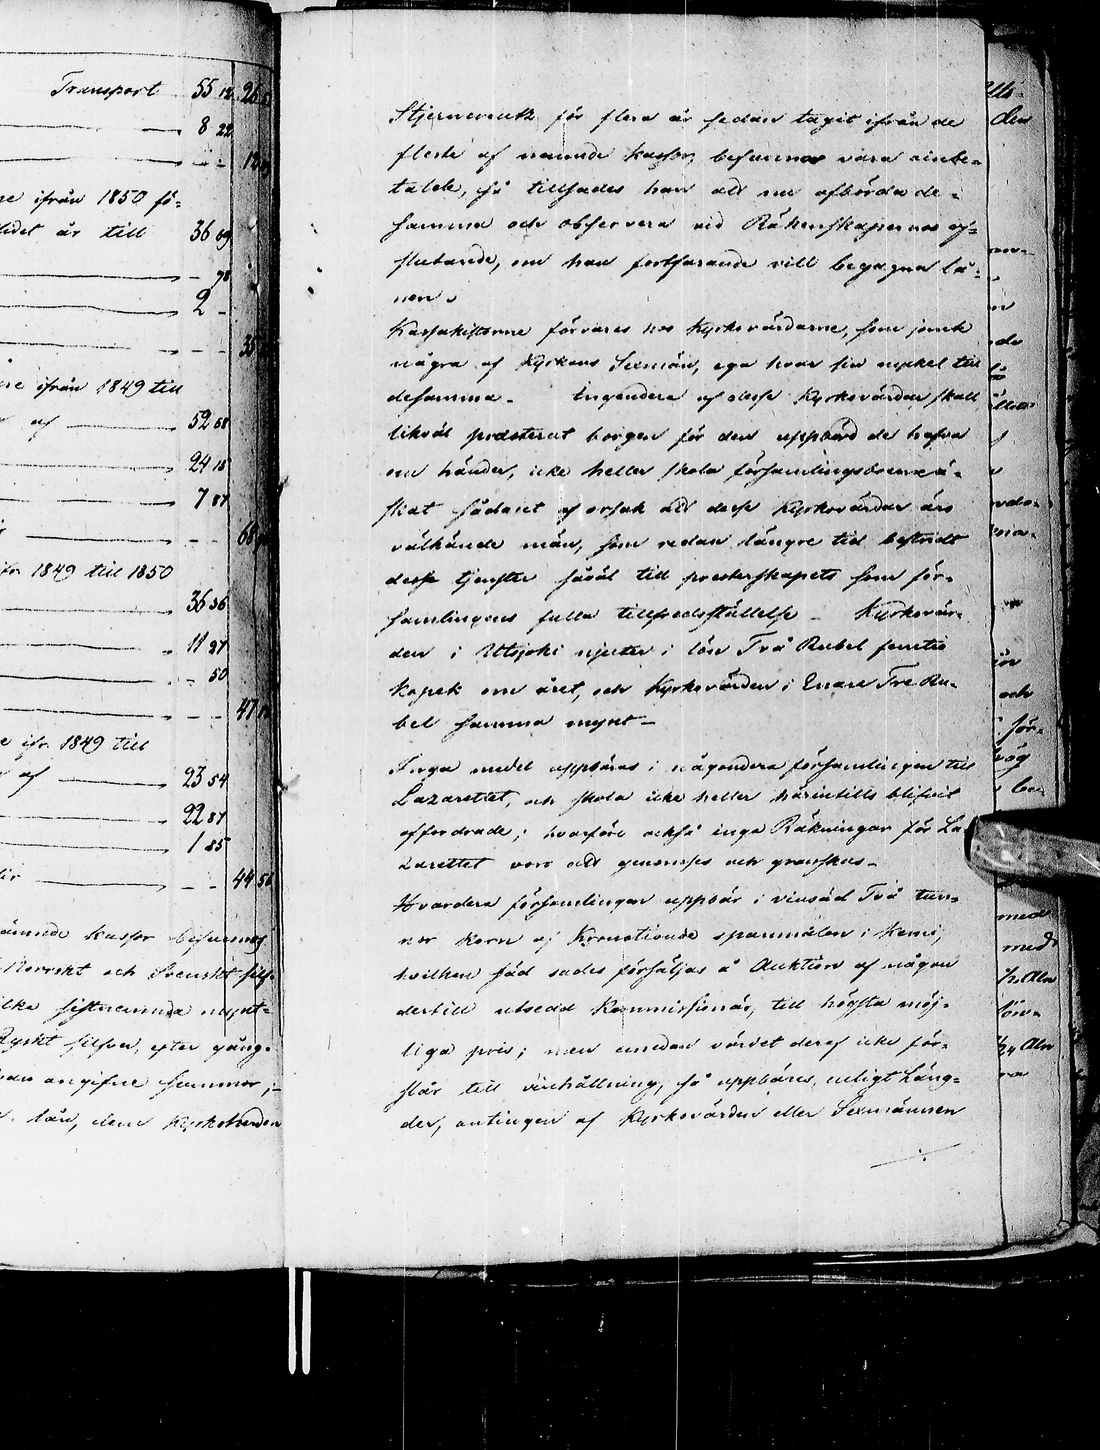 Transport 55 12 26
8 22
- - 12
ifrån 1850 fö-
lidet år till 36 69
- 78
2 -
- - 35
ifrån 1849 till
af 52 68
24 15
7 87
- - 68
1849 till 1850
36 56
11 37
- 50
- - 47
ifr. 1849 till
af 23 54
22 87
1 85
- - 44 56
kassor befunnos
Norrskt och Svenskt silf-
sistnämnda mynt-
Ryskt silfver, efter gång-
angifne summor,
lån, dem Kyrkoherden
Stjerncreutz för flera år sedan tagit ifrån de
fleste af namnde kassor, befunnos vara oinbe-
talde, så tillsades han att nu afbörda de-
samma och observera vid Räkenskapernas af-
slutande, om han fortfarande vill begagna lå-
nen.
Kassakistorne förvaras hos Kyrkovärdarne, som jemte
några af Kyrkans Sexmän, ega hvar sin nyckel till
desamma. Ingendera af desse Kyrkovärdar skall
likväl præsterat borgen för den uppbörd de hafva
om händer, icke heller skola församlingsboerne ä-
skat sådant af orsak att desse Kyrkovärdar äro
välkände män, som redan längre tid bestridt
desse tjenster såväl till presterskapets som för-
samlingens fulla tillfredsställelse. Kyrkovär-
den i Utsjoki njuter i lön Två Rubel femtio
kopek om året, och Kyrkovärden i Enare Tre Ru-
bel samma mynt.
Inga medel uppbäras i någondera församlingen till
Lazarettet, och skola icke heller härintills blifvit
affordrade; hvarföre också inga Räkningar för La-
zarettet voro att genomses och granskas.
Hvardera församlingen uppbär i vinsäd Två tun-
nor Korn af Kronotionde spanmålen i Kemi,
hvilken säd sades försäljas å Auktion af någon
dertill utsedd Kommissionär, till högsta möj-
liga pris; men emedan värdet deraf icke för-
slår till vinhållning, så uppbäres, enligt Läng-
der, antingen af Kyrkovärden eller Sexmännen
den
och
för-
med
med
1/2 Aln
1/24 Aln